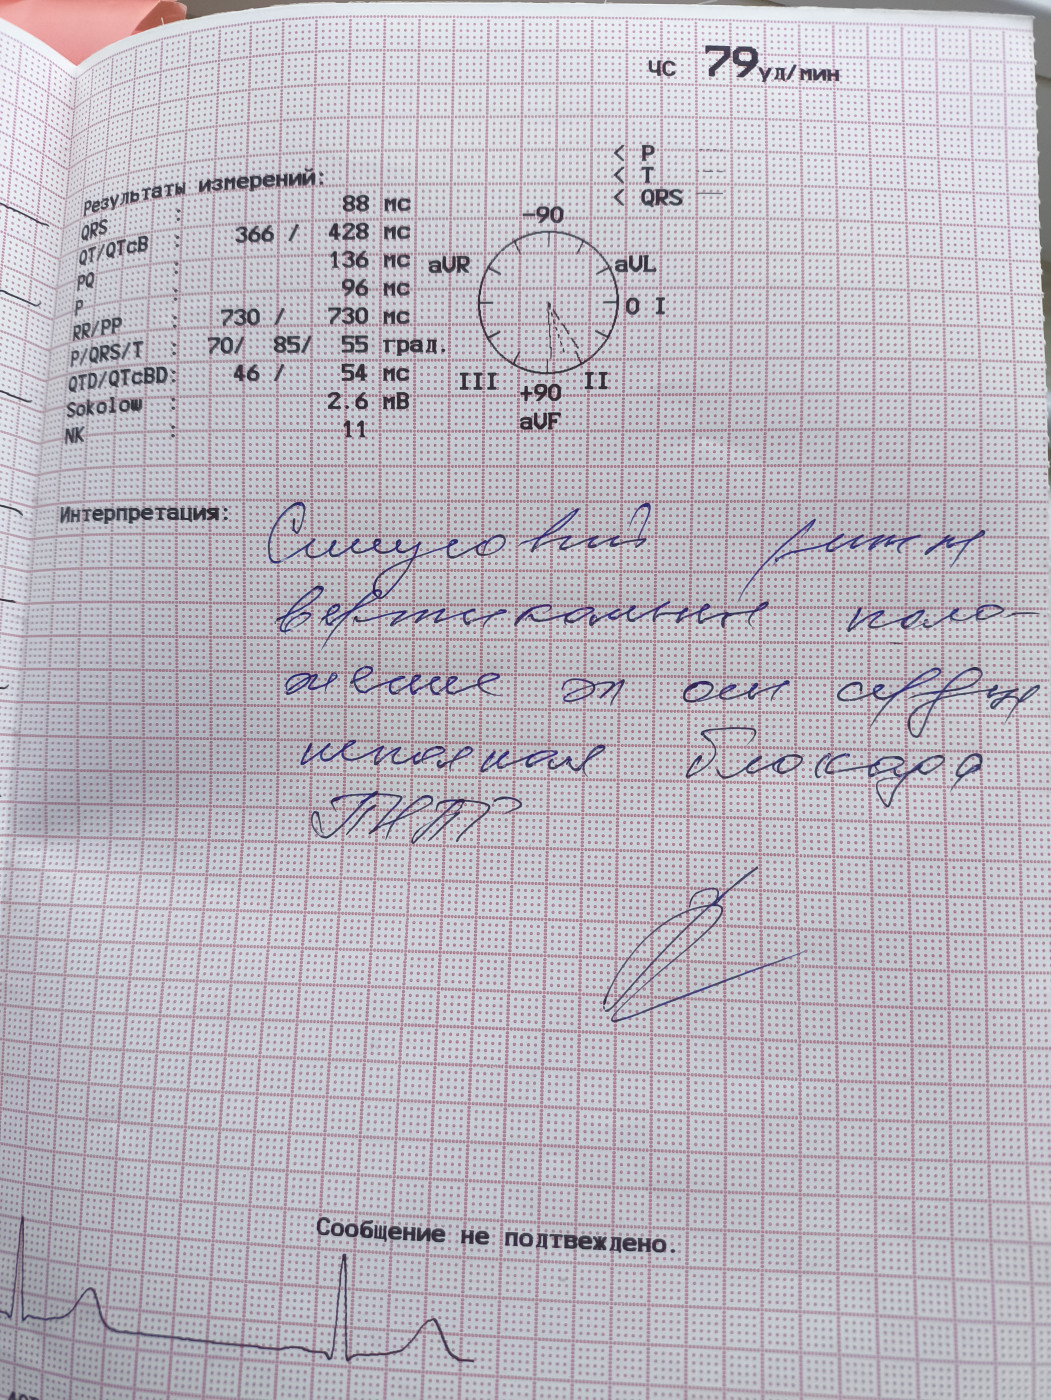 ЧС 79 уд/мин
< P
< T
< QRS
Результаты измерений:
QRS : 88 мс
QT/QTcB : 366 / 428 мс
PQ : 136 мс
P : 96 мс
RR/PP : 730 / 730 мс
P/QRS/T : 70/ 85/ 55 град.
QTD/QTcBD: 46 / 54 мс
Sokolow : 2.6 мВ
NK : 11
-90
aVR aVL
0 I
III II
+90
aVF
Интерпретация: Синусовый ритм
вертикальное поло-
жение эл оси сердца
неполная блокада
ПНПГ
Сообщение не подтвеждено.